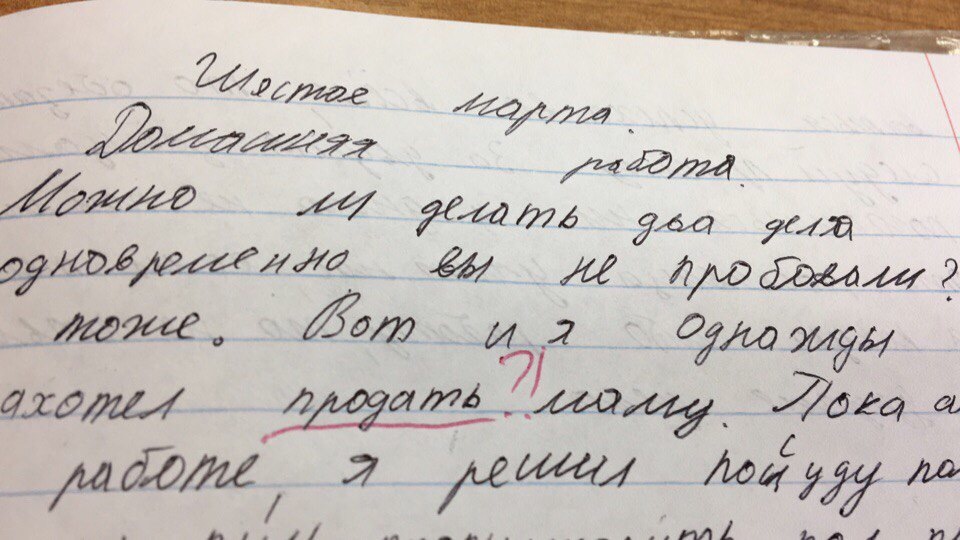 Шястое марта.
Домашняя работа.
Можно ли делать два дела
одновременно вы не пробовали?
тоже. Вот и я однажды
ахотел продать ?! маму. Пока
работе, я решил посуду